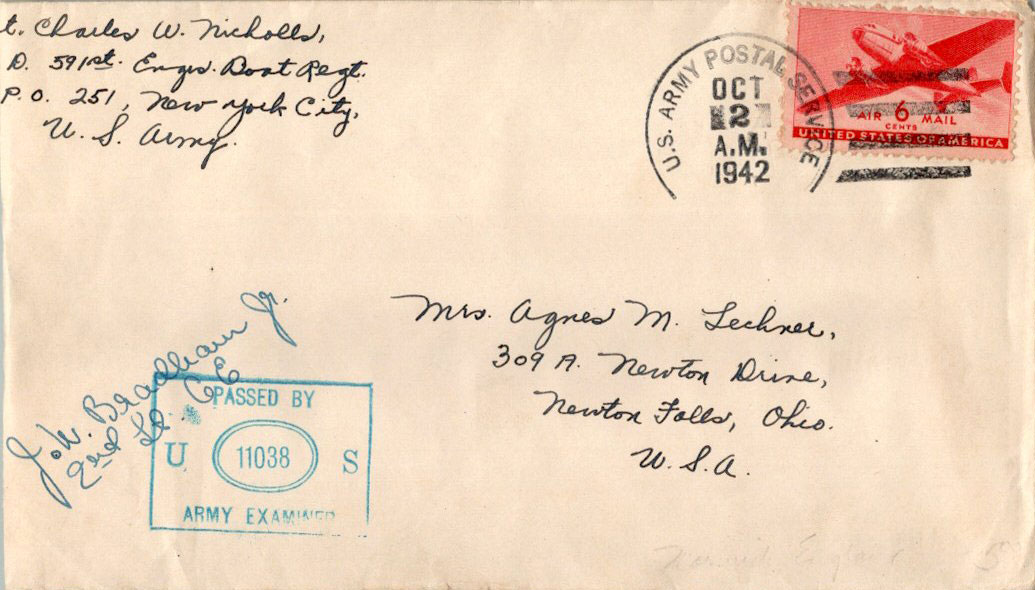 t. Charles W. Nicholls,
D. 591st. Engrs. Boat Regt.
P.O. 251, New York City,
U. S. Army.
U.S. ARMY POSTAL SERVICE
OCT
2
A.M.
1942
AIR 6 MAIL
CENTS
UNITED STATES OF AMERICA
Mrs. Agnes M. Lechner,
309 A. Newton Drive,
Newton Falls, Ohio.
U.S.A.
J.W. Bradham Jr.
2nd Lt CE
PASSED BY
U 11038 S
ARMY EXAMINER